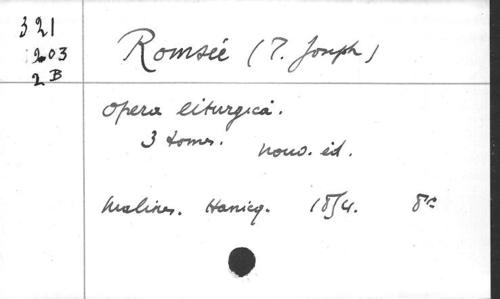 321
203
2B
Romsée (T. Joseph)
Opera liturgica.
3 tomes. nouv. éd.
Malines. Hanicq. 1854. 8°